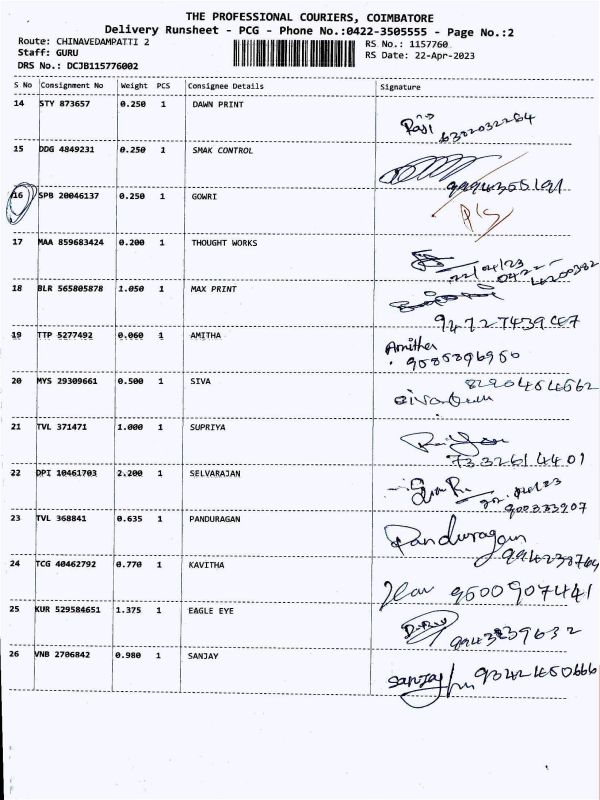 THE PROFESSIONAL COURIERS, COIMBATORE
Delivery Runsheet - PCG - Phone No.:0422-3505555 - Page No.:2
Route: CHINAVEDAMPATTI 2
RS No.: 1157760
Staff: GURU
RS Date: 22-Apr-2023
DRS No.: DCJB115776002
S No Consignment No Weight PCS Consignee Details Signature
14 STY 873657 0.250 1 DAWN PRINT
Raji 6382032264
15 DDG 4849231 0.250 1 SMAK CONTROL
9994355191
16 SPB 20046137 0.250 1 GOWRI
17 MAA 859683424 0.200 1 THOUGHT WORKS
22/04/23
0422-
4200382
18 BLR 565805878 1.050 1 MAX PRINT
19 TTP 5277492 0.060 1 AMITHA
Amitha
9585896950
20 MYS 29309661 0.500 1 SIVA
8220454562
21 TVL 371471 1.000 1 SUPRIYA
7332614401
22 DPI 10461703 2.200 1 SELVARAJAN
23 TVL 368841 0.635 1 PANDURAGAN
Panduragan
24 TCG 40462792 0.770 1 KAVITHA
9500907441
25 KUR 529584651 1.375 1 EAGLE EYE
9943239632
26 VNB 2706842 0.980 1 SANJAY
Sanjay 9342450666